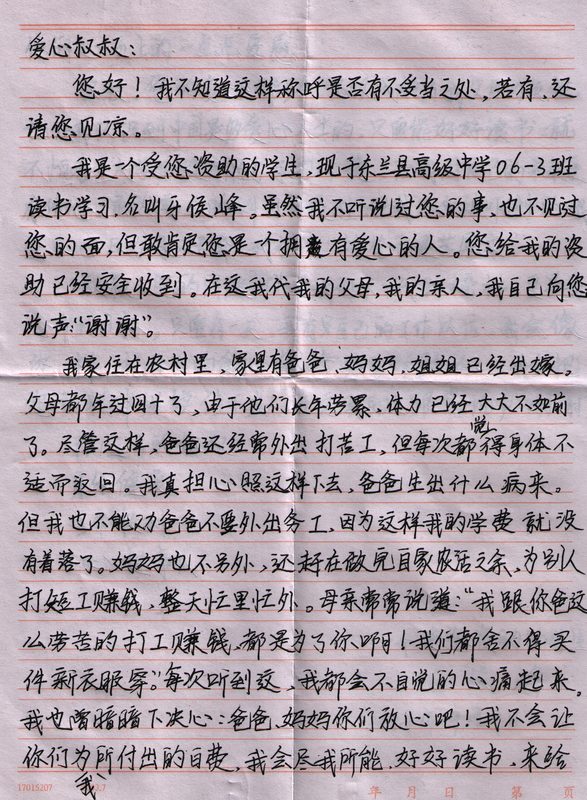 爱心叔叔：
您好！我不知道这样称呼是否有不妥当之处，若有，还
请您见凉。
我是一个受您资助的学生，现于东兰县高级中学06-3班
读书学习，名叫牙侯峰。虽然我不听说过您的事，也不见过
您的面，但敢肯定您是一个拥有爱心的人。您给我的资
助已经安全收到。在这我代我的父母，我的亲人，我自己向您
说声："谢谢"。
我家住在农村里，家里有爸爸、妈妈，姐姐已经出嫁。
父母都年过四十了，由于他们长年劳累，体力已经大大不如前
了。尽管这样，爸爸还经常外出打苦工，但每次都觉得身体不
适而返回。我真担心照这样下去，爸爸生出什么病来。
但我也不能劝爸爸不要外出务工，因为这样我的学费就没
有着落了。妈妈也不另外，还赶在做完自家农活之余，为别人
打短工赚钱，整天忙里忙外。母亲常常说道："我跟你爸这
么劳苦的打工赚钱，都是为了你啊！我们都舍不得买
件新衣服穿。"每次听到这，我都会不自觉的心痛起来。
我也曾暗暗下决心：爸爸、妈妈你们放心吧！我不会让
你们为我所付出的白费，我会尽我所能，好好读书，来给
17015207
年 月 日 第 页